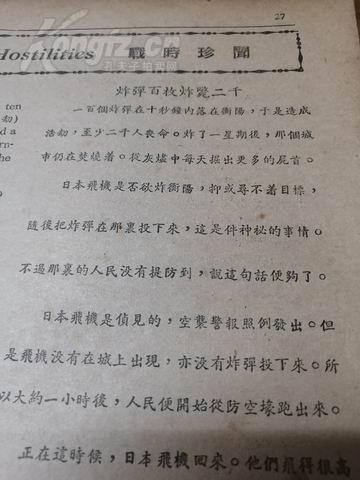 27
Hostilities 戰時珍聞
炸彈百枚炸斃二千
一百個炸彈在十秒鐘內落在衡陽，于是造成
活劫，至少二千人喪命。炸了一星期後，那個城
市仍在焚燒着。從灰燼中每天掘出更多的屍首。
日本飛機是否欲炸衡陽，抑或尋不着目標，
隨後把炸彈在那裏投下來，這是件神祕的事情。
不過那裏的人民沒有提防到，說這句話便夠了。
日本飛機是偵見的，空襲警報照例發出。但
是飛機沒有在城上出現，亦沒有炸彈投下來。所
以大約一小時後，人民便開始從防空壕跑出來。
正在這時候，日本飛機回來。他們飛得很高
ten
劫)
d a
rn-
the